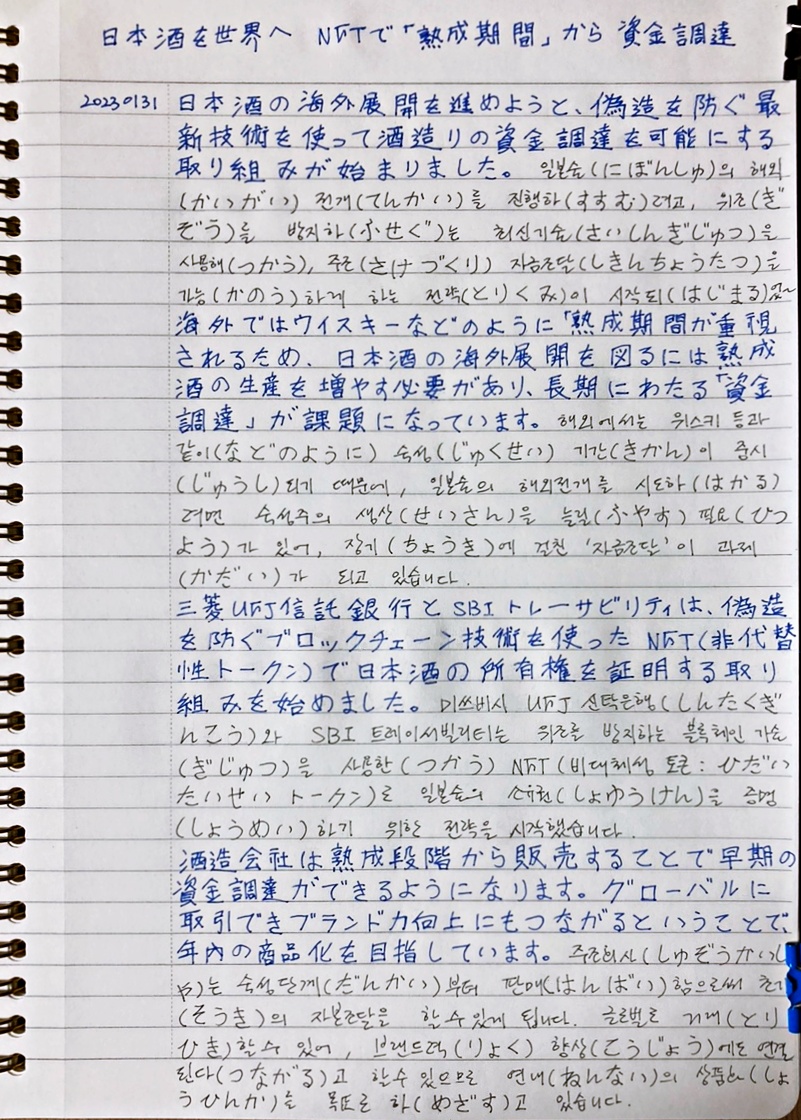 日本酒を世界へ NFTで「熟成期間」から資金調達
20230131 日本酒の海外展開を進めようと、偽造を防ぐ最
新技術を使って酒造りの資金調達を可能にする
取り組みが始まりました。일본술(にほんしゅ)의 해외
(かいがい) 전개(てんかい)를 진행하(すすむ)려고, 위조(ぎ
ぞう)를 방지하(ふせぐ)는 최신기술(さいしんぎじゅつ)을
사용해(つかう), 주조(さけづくり) 자금조달(しきんちょうたつ)을
가능(かのう)하게 하는 전략(とりくみ)이 시작되(はじまる)었~
海外ではウイスキーなどのように「熟成期間が重視
されるため、日本酒の海外展開を図るには熟成
酒の生産を増やす必要があり、長期にわたる「資金
調達」が課題になっています。해외에서는 위스키 등과
같이(などのように) 숙성(じゅくせい) 기간(きかん)이 중시
(じゅうし)되기 때문에, 일본술의 해외전개를 시도하(はかる)
려면 숙성주의 생산(せいさん)을 늘릴(ふやす) 필요(ひつ
よう)가 있어, 장기(ちょうき)에 걸친 '자금조달'이 과제
(かだい)가 되고 있습니다.
三菱UFJ信託銀行とSBIトレーサビリティは、偽造
を防ぐブロックチェーン技術を使ったNFT(非代替
性トークン)で日本酒の所有権を証明する取り
組みを始めました。미쓰비시 UFJ 신탁은행(しんたくぎ
んこう)와 SBI 트레이서빌리티는 위조를 방지하는 블록체인 기술
(ぎじゅつ)을 사용한(つかう) NFT(비대체성 토큰: ひだい
たいせい トークン)로 일본술의 소유권(しょゆうけん)을 증명
(しょうめい)하기 위한 전략을 시작했습니다.
酒造会社は熟成段階から販売することで早期の
資金調達ができるようになります。グローバルに
取引できブランド力向上にもつながるということで、
年内の商品化を目指しています。주조회사(しゅぞうかいし
ゃ)는 숙성단계(だんかい)부터 판매(はんばい)함으로써 초기
(そうき)의 자본조달을 할 수 있게 됩니다. 글로벌로 거래(とり
ひき)할 수 있어, 브랜드력(りょく) 향상(こうじょう)에도 연결
된다(つながる)고 할 수 있으므로 연내(ねんない)의 상품화(しょ
うひんか)를 목표로 하(めざす)고 있습니다.